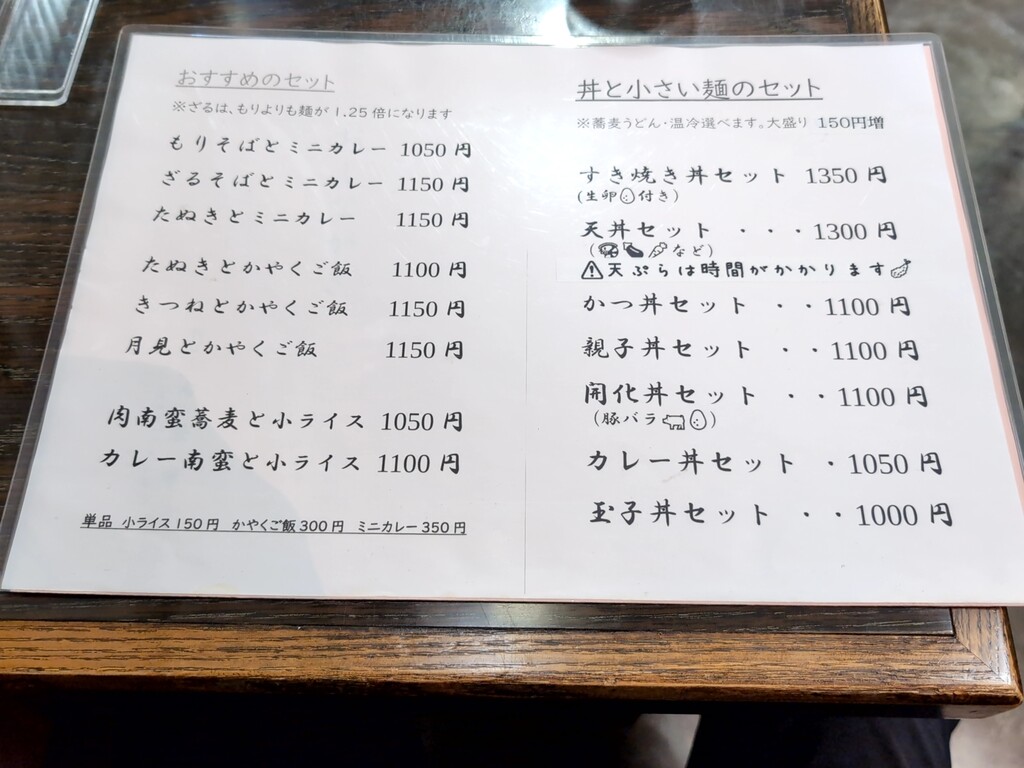 おすすめのセット
※ざるは、もりよりも麺が1.25倍になります
もりそばとミニカレー 1050円
ざるそばとミニカレー 1150円
たぬきとミニカレー 1150円
たぬきとかやくご飯 1100円
きつねとかやくご飯 1150円
月見とかやくご飯 1150円
肉南蛮蕎麦と小ライス 1050円
カレー南蛮と小ライス 1100円
単品 小ライス150円 かやくご飯300円 ミニカレー350円
丼と小さい麺のセット
※蕎麦うどん・温冷選べます。大盛り 150円増
すき焼き丼セット 1350円
(生卵付き)
天丼セット ・・・1300円
(など)
天ぷらは時間がかかります
かつ丼セット ・・1100円
親子丼セット ・・1100円
開化丼セット ・・1100円
(豚バラ)
カレー丼セット ・1050円
玉子丼セット ・・1000円